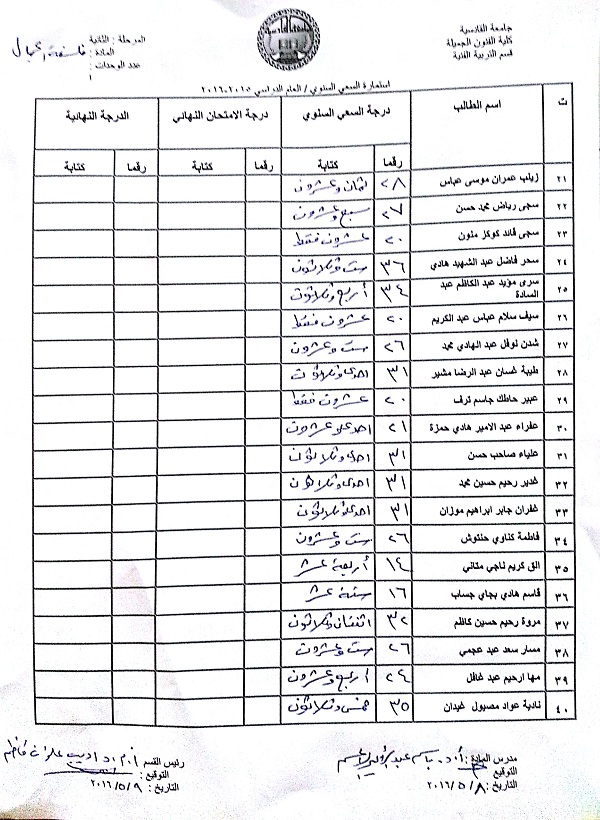 جامعة القادسية
كلية الفنون الجميلة
قسم التربية الفنية
المرحلة : الثانية
المادة : فلسفة الجمال
عدد الوحدات :
استمارة السعي السنوي / العام الدراسي ٢٠١٥-٢٠١٦
ت اسم الطالب درجة السعي السنوي درجة الامتحان النهائي الدرجة النهائية
رقما كتابة رقما كتابة رقما كتابة
٢١ زينب عمران موسى عباس ٢٨ ثمان وعشرون
٢٢ سجى رياض محمد حسن ٢٧ سبع وعشرون
٢٣ سجى قائد كوكز ملون ٢٠ عشرون فقط
٢٤ سحر فاضل عبد الشهيد هادي ٣٦ ست وثلاثون
٢٥ سرى مؤيد عبد الكاظم عبد السادة ٣٤ أربع وثلاثون
٢٦ سيف سلام عباس عبد الكريم ٢٠ عشرون فقط
٢٧ شدن نوفل عبد الهادي محمد ٢٦ ست وعشرون
٢٨ طيبة غسان عبد الرضا مشير ٣١ احدى وثلاثون
٢٩ عبير حاطك جاسم ترف ٢٠ عشرون فقط
٣٠ عفراء عبد الامير هادي حمزة ٢١ احدى وعشرون
٣١ علياء صاحب حسن ٣١ احدى وثلاثون
٣٢ غدير رحيم حسين محمد ٣١ احدى وثلاثون
٣٣ غفران جابر ابراهيم موزان ٣١ احدى وثلاثون
٣٤ فاطمة كناوي حنتوش ٢٦ ست وعشرون
٣٥ الق كريم ناجي متاني ١٤ أربعة عشر
٣٦ قاسم هادي بجاي جساب ١٦ ستة عشر
٣٧ مروة رحيم حسين كاظم ٣٢ اثنان وثلاثون
٣٨ مسار سعد عبد عجمي ٢٦ ست وعشرون
٣٩ مها ارحيم عبد غافل ٢٤ اربع وعشرون
٤٠ نادية عواد مصيول غيدان ٣٥ خمس وثلاثون
مدرس المادة : أ.د. باسم
التوقيع
التاريخ : ٢٠١٦/٥/٨
رئيس القسم
التوقيع :
التاريخ : ٢٠١٦/٥/٩